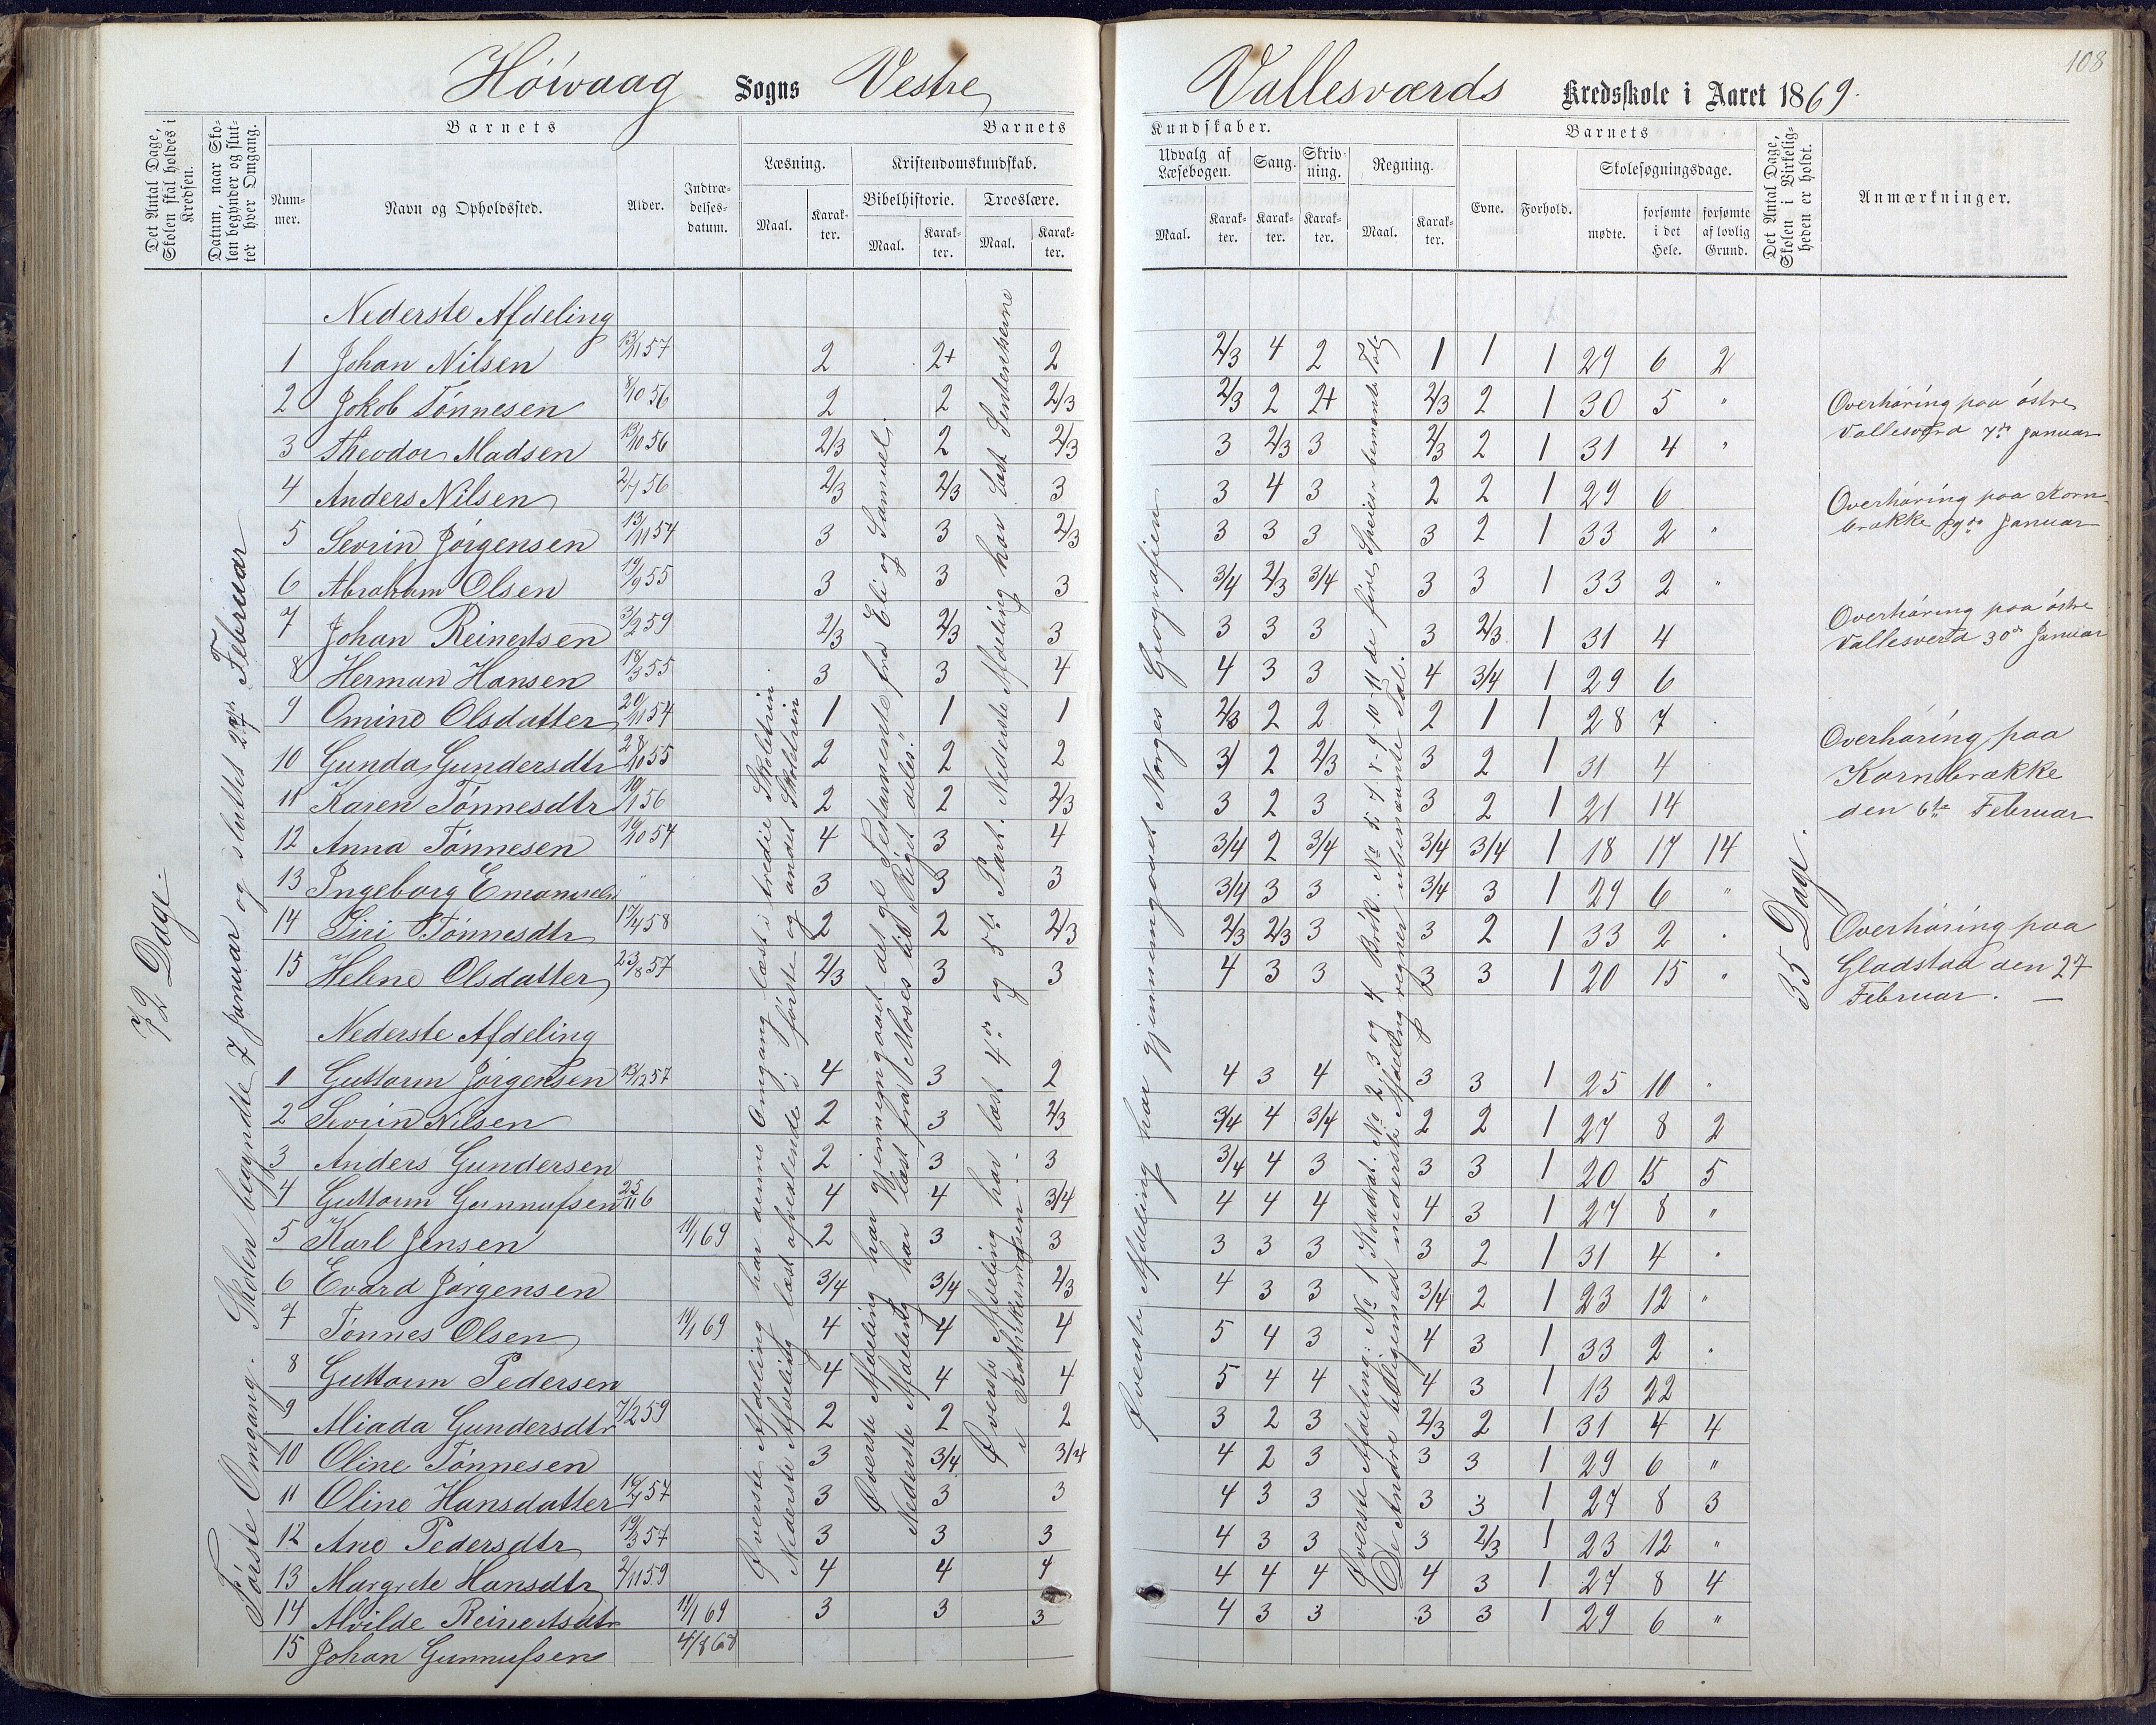 108
Höivaag Sogns Vestre Vallesværds Kredsskole i Aaret 1869.
Det Antal Dage, Skolen skal holdes i Kredsen.
Datum, naar Skolen begynder og slutter hver Omgang.
Barnets
Nummer.
Navn og Opholdssted.
Alder.
Indtrædelsesdatum.
Barnets
Læsning.
Maal.
Karakter.
Kristendomskundskab.
Bibelhistorie.
Maal.
Karakter.
Troeslære.
Maal.
Karakter.
Kundskaber.
Udvalg af Læsebogen.
Maal.
Karakter.
Sang.
Karakter.
Skrivning.
Karakter.
Regning.
Maal.
Karakter.
Barnets
Evne.
Forhold.
Skolesøgningsdage.
mødte.
forsømte i det Hele.
forsømte af lovlig Grund.
Det Antal Dage, Skolen i Virkeligheden er holdt.
Anmærkninger.
72 Dage.
Første Omgang. Skolen begyndte 7 Januar og sluttet 27de Februar
Øverste Afdeling har denne Omgang læst i tredie Skoletrin
Nederste Afdeling læst afvexlende i første og andet Skoletrin
Øverste Afdeling har gjennemgaaet det gle Testamente fra Eli og Samuel.
Nederste Afdeling har læst fra Moses til "Riget deles."
Øverste Afdeling har læst 4de og 5te Part. Nederste Afdeling har læst Sententserne
i Katekismusen
Øverste Afdeling har gjennemgaaet Norges Geografien
Øverste Afdeling: No 1 Kvadrat. No 2, 3 og 4 Brök. No 5. 7. 8-9-10-11 de fire Speiser benævnte Tal
De Andre tilligemed nederste Afdeling regner ubenævnte Tal.
35 Dage.
Nederste Afdeling
1 Johan Nilsen 13/11 57 2 2+ 2 2/3 4 2 1 1 1 29 6 2
2 Jokob Tönnesen 8/10 56 2 2 2/3 2/3 2 2+ 2/3 2 1 30 5 "
3 Theodor Madsen 13/10 56 2/3 2 2/3 3 2/3 3 2/3 2 1 31 4 "
4 Anders Nilsen 2/7 56 2/3 2/3 3 3 4 3 2 2 1 29 6
5 Sevrin Jörgensen 13/11 54 3 3 2/3 3 3 3 3 2 1 33 2 "
6 Abraham Olsen 19/9 55 3 3 3 3/4 2/3 3/4 3 3 1 33 2 "
7 Johan Reinertsen 3/2 59 2/3 2/3 3 3 3 3 3 2/3 1 31 4
8 Herman Hansen 18/3 55 3 3 4 4 3 3 4 3/4 1 29 6
9 Omine Olsdatter 20/11 54 1 1 1 2/3 2 2 2 1 1 28 7
10 Gunda Gundersdtr 28/10 55 2 2 2 3 2 2/3 3 2 1 31 4
11 Karen Tönnesdtr 19/1 56 2 2 2/3 3 2 3 3 2 1 21 14
12 Anna Tönnesen 16/10 54 4 3 4 3/4 2 3/4 3/4 3/4 1 18 17 14
13 Ingeborg Emanuels " 3 3 3 3/4 3 3 3/4 3 1 29 6 "
14 Siri Tönnesdtr 17/4 58 2 2 2/3 2/3 2/3 3 3 2 1 33 2 "
15 Helene Olsdatter 23/8 57 2/3 3 3 4 3 3 3 3 1 20 15 "
Nederste Afdeling
1 Guttorm Jörgensen 13/12 57 4 3 2 4 3 4 3 3 1 25 10 "
2 Sevrin Nilsen 2 3 2/3 3/4 4 3/4 2 2 1 27 8 2
3 Anders Gundersen 2 3 3 3/4 4 3 3 3 1 20 15 5
4 Guttorm Gunnufsen 25/11 6 4 4 3/4 4 4 4 4 3 1 27 8 "
5 Karl Jensen 11/1 69 2 3 3 3 3 3 3 2 1 31 4 "
6 Evard Jörgensen 3/4 3/4 2/3 4 3 3 3/4 2 1 23 12 "
7 Tönnes Olsen 11/1 69 4 4 4 5 4 3 4 3 1 33 2 "
8 Guttorm Pedersen 4 4 4 5 4 4 4 3 1 13 22
9 Aliada Gundersdtr 7/2 59 2 2 2 3 2 3 2/3 2 1 31 4 4
10 Oline Tönnesen 3 3/4 3/4 4 2 3 3 3 1 29 6 "
11 Oline Hansdatter 16/7 57 3 3 3 4 3 3 3 3 1 27 8 3
12 Ane Pedersdtr 19/3 57 3 3 3 4 3 3 3 2/3 1 23 12 "
13 Margrete Hansdtr 2/11 59 4 4 4 4 4 4 4 3 1 27 8 4
14 Alvilde Reinertsdtr 11/1 69 3 3 3 4 3 3 3 3 1 29 6 "
15 Johan Gunnufsen 4/8 68
Overhöring paa östre
Vallesverd 7de Januar
Overhöring paa Korn-
brække Januar
Overhöring paa östre
Vallesverd 30de Januar
Overhöring paa
Kornbrække
den 6te Februar
Overhöring paa
Gladstad den 27
Februar. —